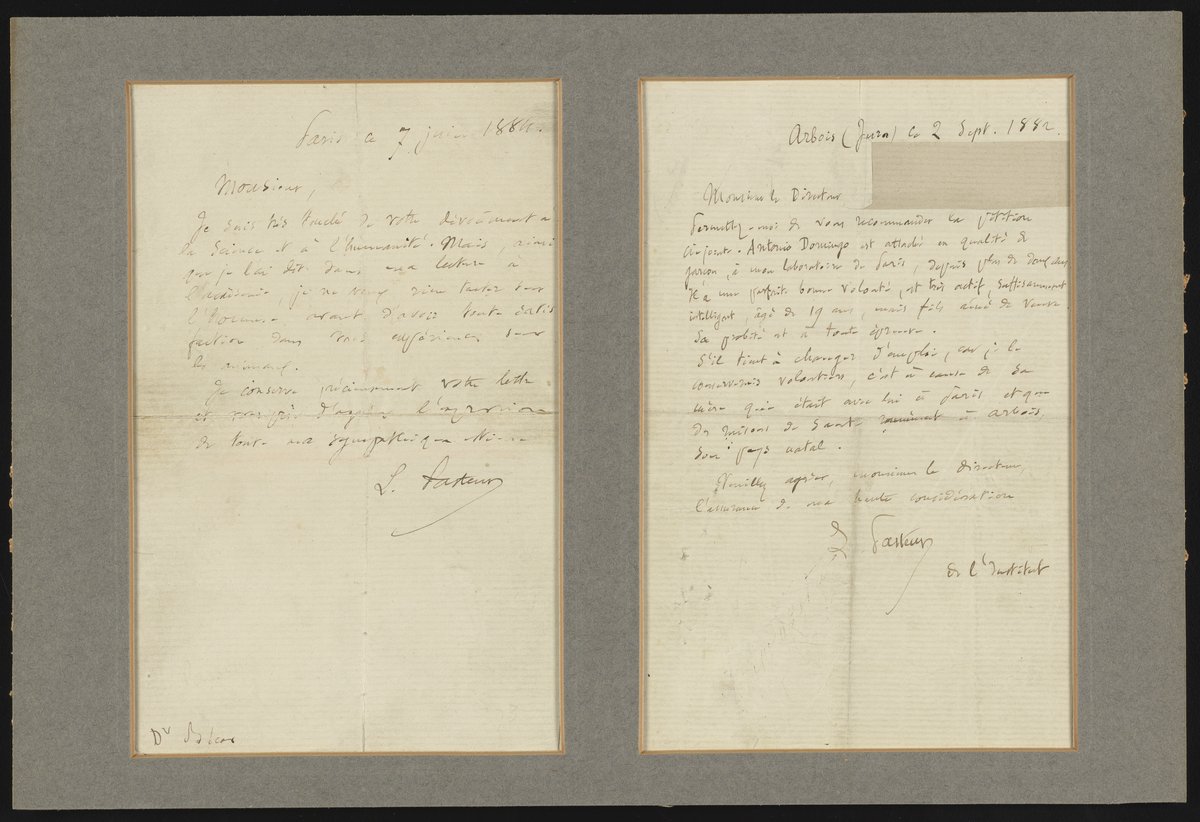 Paris ce 7 juin 1884.
Monsieur,
Je suis très touché de votre dévouement à
la Science et à l'humanité. Mais, ainsi
que je l'ai dit dans ma lecture à
l'académie, je ne veux rien tenter sur
l'homme avant d'avoir toute satis
faction dans mes expériences sur
les animaux.
Je conserve précieusement votre lettre
et vous prie d'agréer l'expression
de toute ma sympathique
L. Pasteur
Dr
Arbois (Jura) ce 2 Sept. 1882.
Monsieur le Directeur
Permettez-moi de vous recommander la pétition
ci-jointe. Antonio Domingo est attaché en qualité de
garçon, à mon laboratoire de Paris, depuis plus de deux ans
Il a une parfaite bonne volonté, est très actif, suffisamment
intelligent, âgé de 19 ans, mais fils aîné de veuve
Sa probité est à toute épreuve.
S'il tient à changer d'emploi, car je le
conserverais volontiers, c'est à cause de sa
mère qui était avec lui à Paris et que
des raisons de santé ramènent à Arbois,
son pays natal.
Veuillez agréer, monsieur le directeur,
l'assurance de ma haute considération
L. Pasteur
de l'Institut